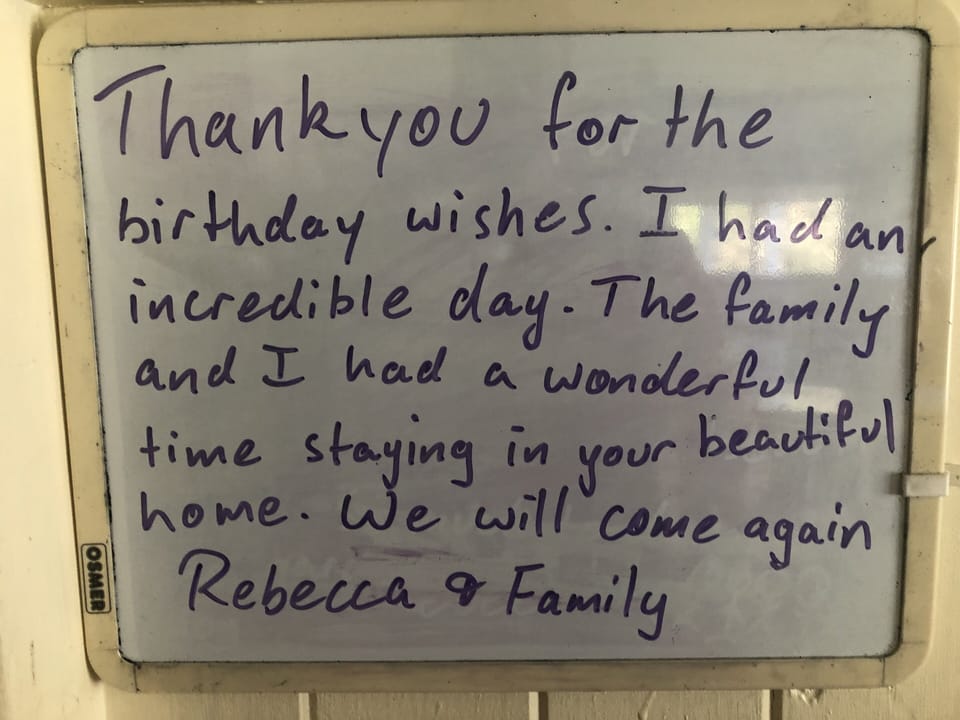 Thankyou for the
birthday wishes. I had an
incredible day. The family
and I had a wonderful
time staying in your beautiful
home. We will come again
Rebecca & Family
OSMER